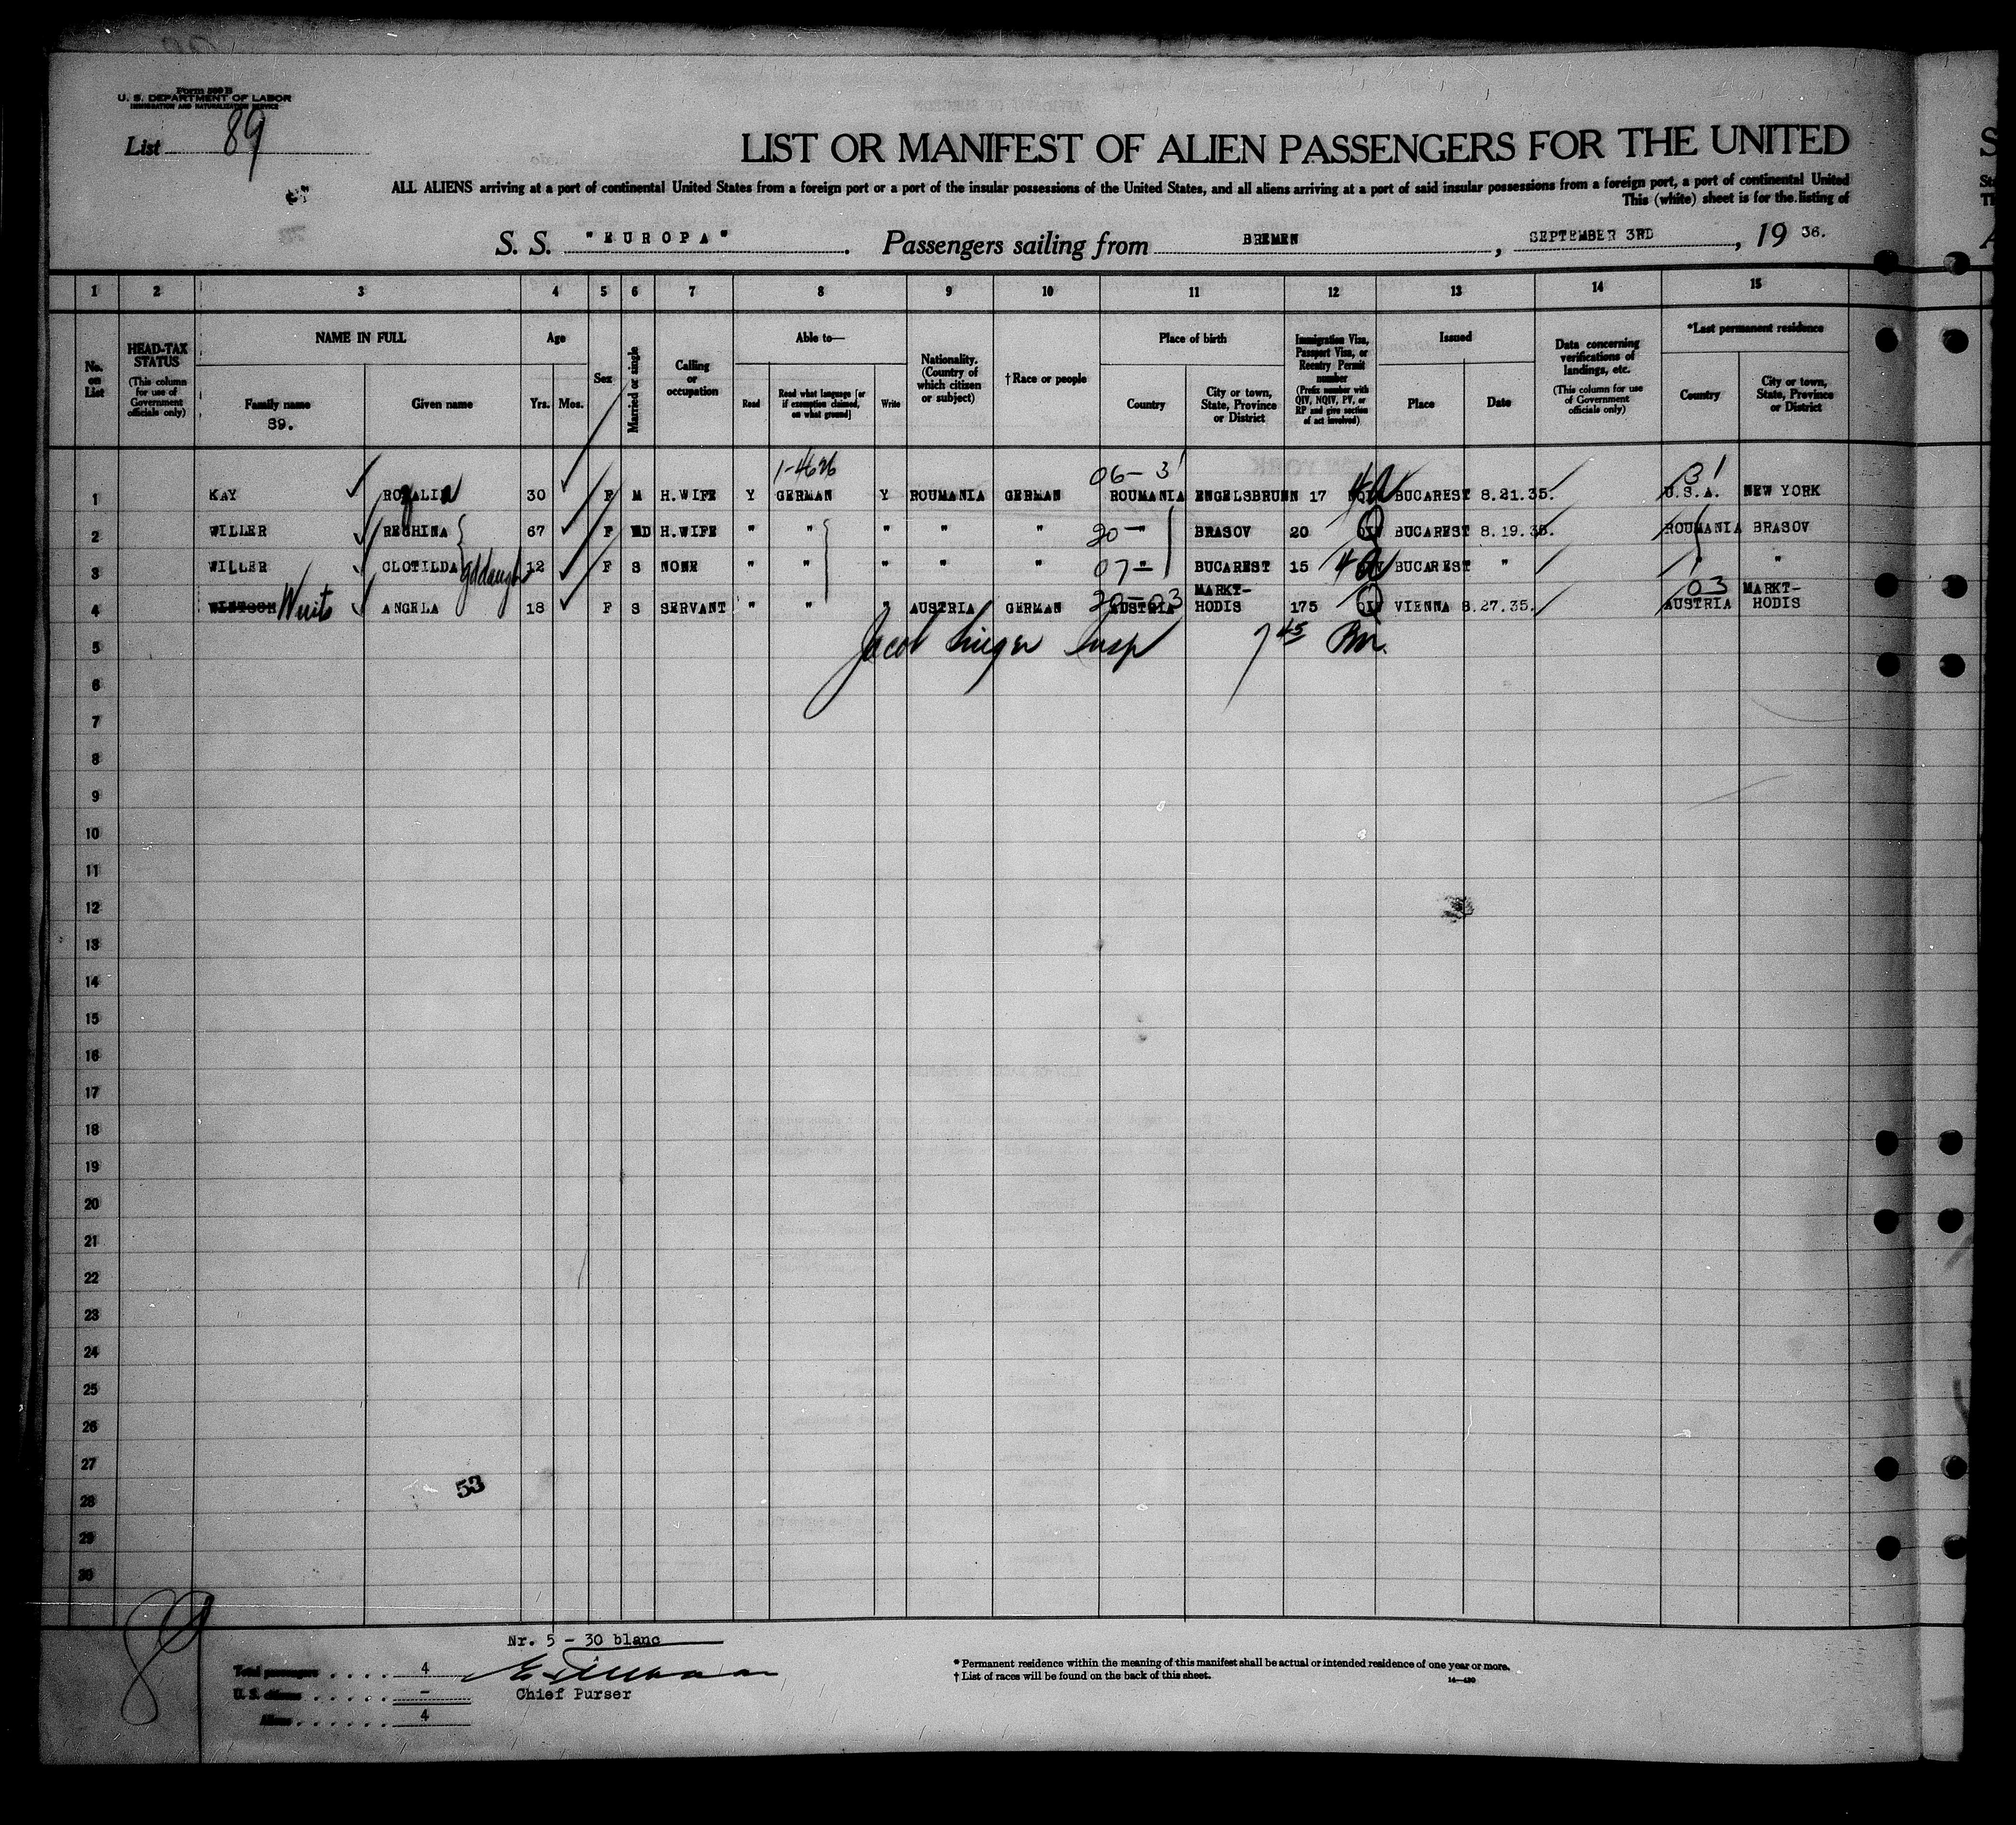 Form 500 B
U. S. DEPARTMENT OF LABOR
IMMIGRATION AND NATURALIZATION SERVICE
List 89
LIST OR MANIFEST OF ALIEN PASSENGERS FOR THE UNITED
ALL ALIENS arriving at a port of continental United States from a foreign port or a port of the insular possessions of the United States, and all aliens arriving at a port of said insular possessions from a foreign port, a port of continental United
This (white) sheet is for the listing of
S. S. "EUROPA". Passengers sailing from BREMEN, SEPTEMBER 3RD, 19 36.
1 2 3 4 5 6 7 8 9 10 11 12 13 14 15
No. on List
HEAD-TAX STATUS (This column for use of Government officials only)
NAME IN FULL
Family name
89.
Given name
Age
Yrs. Mos.
Sex
Married or single
Calling or occupation
Able to—
Read
Read what language [or if exemption claimed, on what ground]
Write
Nationality. (Country of which citizen or subject)
† Race or people
Place of birth
Country
City or town, State, Province or District
Immigration Visa, Passport Visa, or Reentry Permit number (Prefix number with QIV, NQIV, PV, or RP and give section of act involved)
Issued
Place
Date
Data concerning verifications of landings, etc. (This column for use of Government officials only)
*Last permanent residence
Country
City or town, State, Province or District
1-4626 06-31 31
1 KAY ROZALIA 30 F M H.WIFE Y GERMAN Y ROUMANIA GERMAN ROUMANIA ENGELSBRUNN 17 BUCAREST 8.21.35. U.S.A. NEW YORK
2 WILLER REGHINA 67 F WD H.WIFE " " " " " 20- " BRASOV 20 QIV BUCAREST 8.19.35. ROUMANIA BRASOV
3 WILLER CLOTILDA gddaught 12 F S NONE " " " " " 07- " BUCAREST 15 BUCAREST " " "
4 Wuits ANGELA 18 F S SERVANT " " " AUSTRIA GERMAN 20-03 AUSTRIA MARKT-HODIS 175 QIV VIENNA 8.27.35. 03 AUSTRIA MARKT-HODIS
5 Jacob Insp 7 45 Pm.
6
7
8
9
10
11
12
13
14
15
16
17
18
19
20
21
22
23
24
25
26
27
53
28
29
30
89
Nr. 5 - 30 blanc
Total passengers . . . . 4
U. S. citizens . . . . . -
Chief Purser
Aliens . . . . . . 4
* Permanent residence within the meaning of this manifest shall be actual or intended residence of one year or more.
† List of races will be found on the back of this sheet.